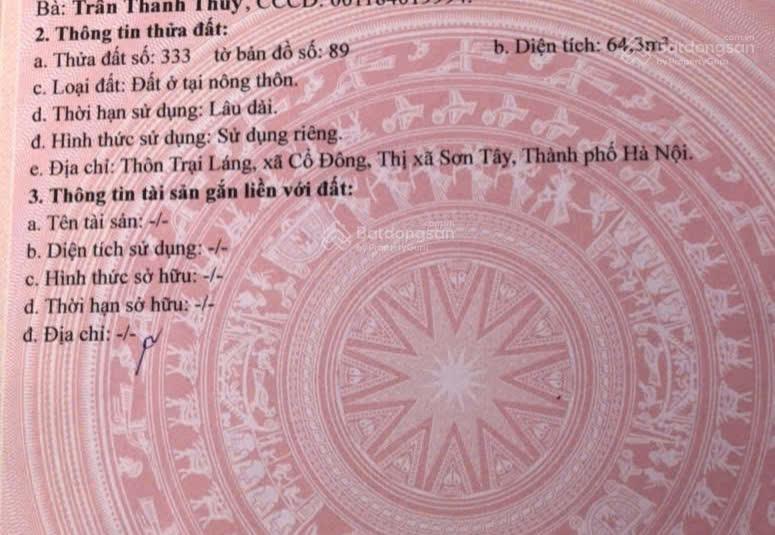 Bà: Trần Thanh Thủy, CCCD:
2. Thông tin thửa đất:
a. Thửa đất số: 333 tờ bản đồ số: 89 b. Diện tích: 64,3m²
c. Loại đất: Đất ở tại nông thôn.
d. Thời hạn sử dụng: Lâu dài.
đ. Hình thức sử dụng: Sử dụng riêng.
e. Địa chỉ: Thôn Trại Láng, xã Cổ Đông, Thị xã Sơn Tây, Thành phố Hà Nội.
3. Thông tin tài sản gắn liền với đất:
a. Tên tài sản: -/-
b. Diện tích sử dụng: -/-
c. Hình thức sở hữu: -/-
d. Thời hạn sở hữu: -/-
đ. Địa chỉ: -/-
Batdongsan.com.vn
by PropertyGuru
Batdongsan.com.vn
by PropertyGuru